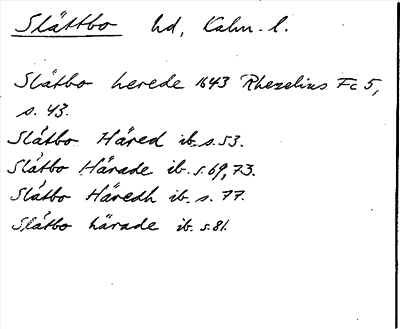 Slättbo hd, Kalm. l.
Slätbo herede 1643 Rhezelius Fc 5,
s. 43.
Slåtbo Häred ib. s. 53.
Slåtbo Härade ib. s. 69, 73.
Slåtbo Häredh ib. s. 77.
Slåtbo härade ib. s. 81.